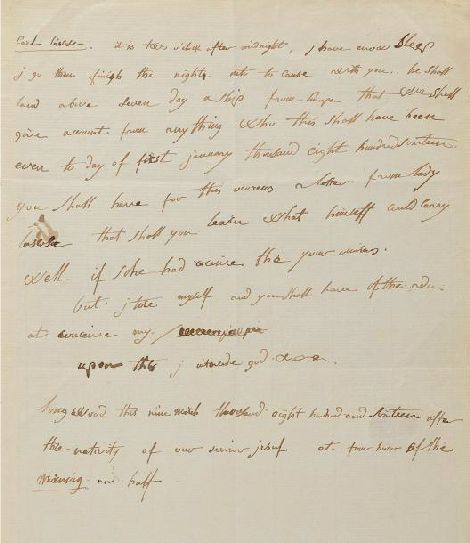 Count Lascases. it is two o'clock after midnight, j have enow sleep
j go then finish the night into to cause with you. he shall
land above seven day a ship from Europe that we shall
give account from anything who this shall have been
even to day of first january thousand eight hundred sixteen
you shall have for this ocurens a letter from lady
lascases that shall you learn what himself could carry
well if she had conceive the your occurens.
but j tire myself and you shall have of the ado
at conceive my
upon this j intrude god
longwood this nine march thousand eight hundred sixteen after
the nativity of our savior jesus at four hours of the
morning and half